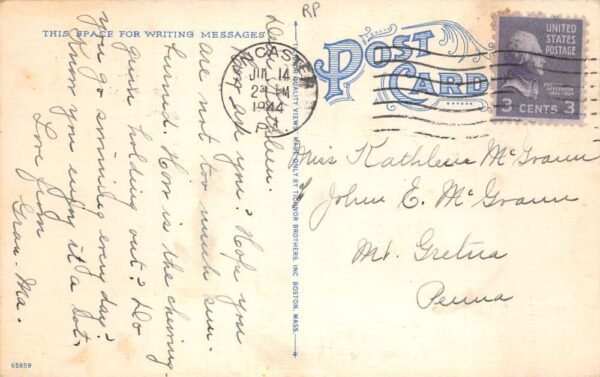 RP
THIS SPACE FOR WRITING MESSAGES
POST
CARD
UNITED
STATES
POSTAGE
3 CENTS 3
NCASTE
14
1944
Dear Kathleen:
How are you? Hope you
are not too much sun-
burned. How is the chewing
gum holding out? Do
you go swimming every day?
Know you enjoy it a lot.
Love from
Gran. Ma.
QUALITY VIEWS MADE ONLY BY TICHNOR BROTHERS, INC. BOSTON, MASS.
Miss Kathleen McGrann
John E. McGrann
Mt. Gretna
Penna
65859